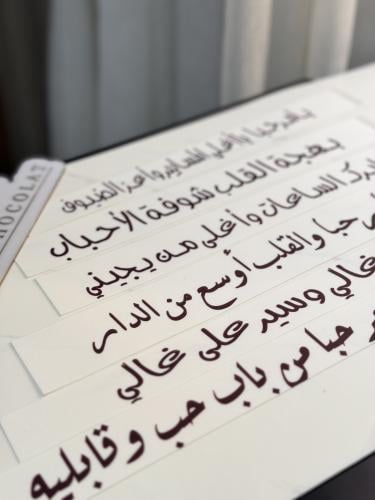 يا مرحبا يا أهلي المسايير وأعز الضيوف
بهجة القلب شوفة الأحباب
الساعات وأغلى من يجيني
حبا والقلب أوسع من الدار
غالي وسير على غالي
حبا من باب حب وقابليه
CHOCOLAT